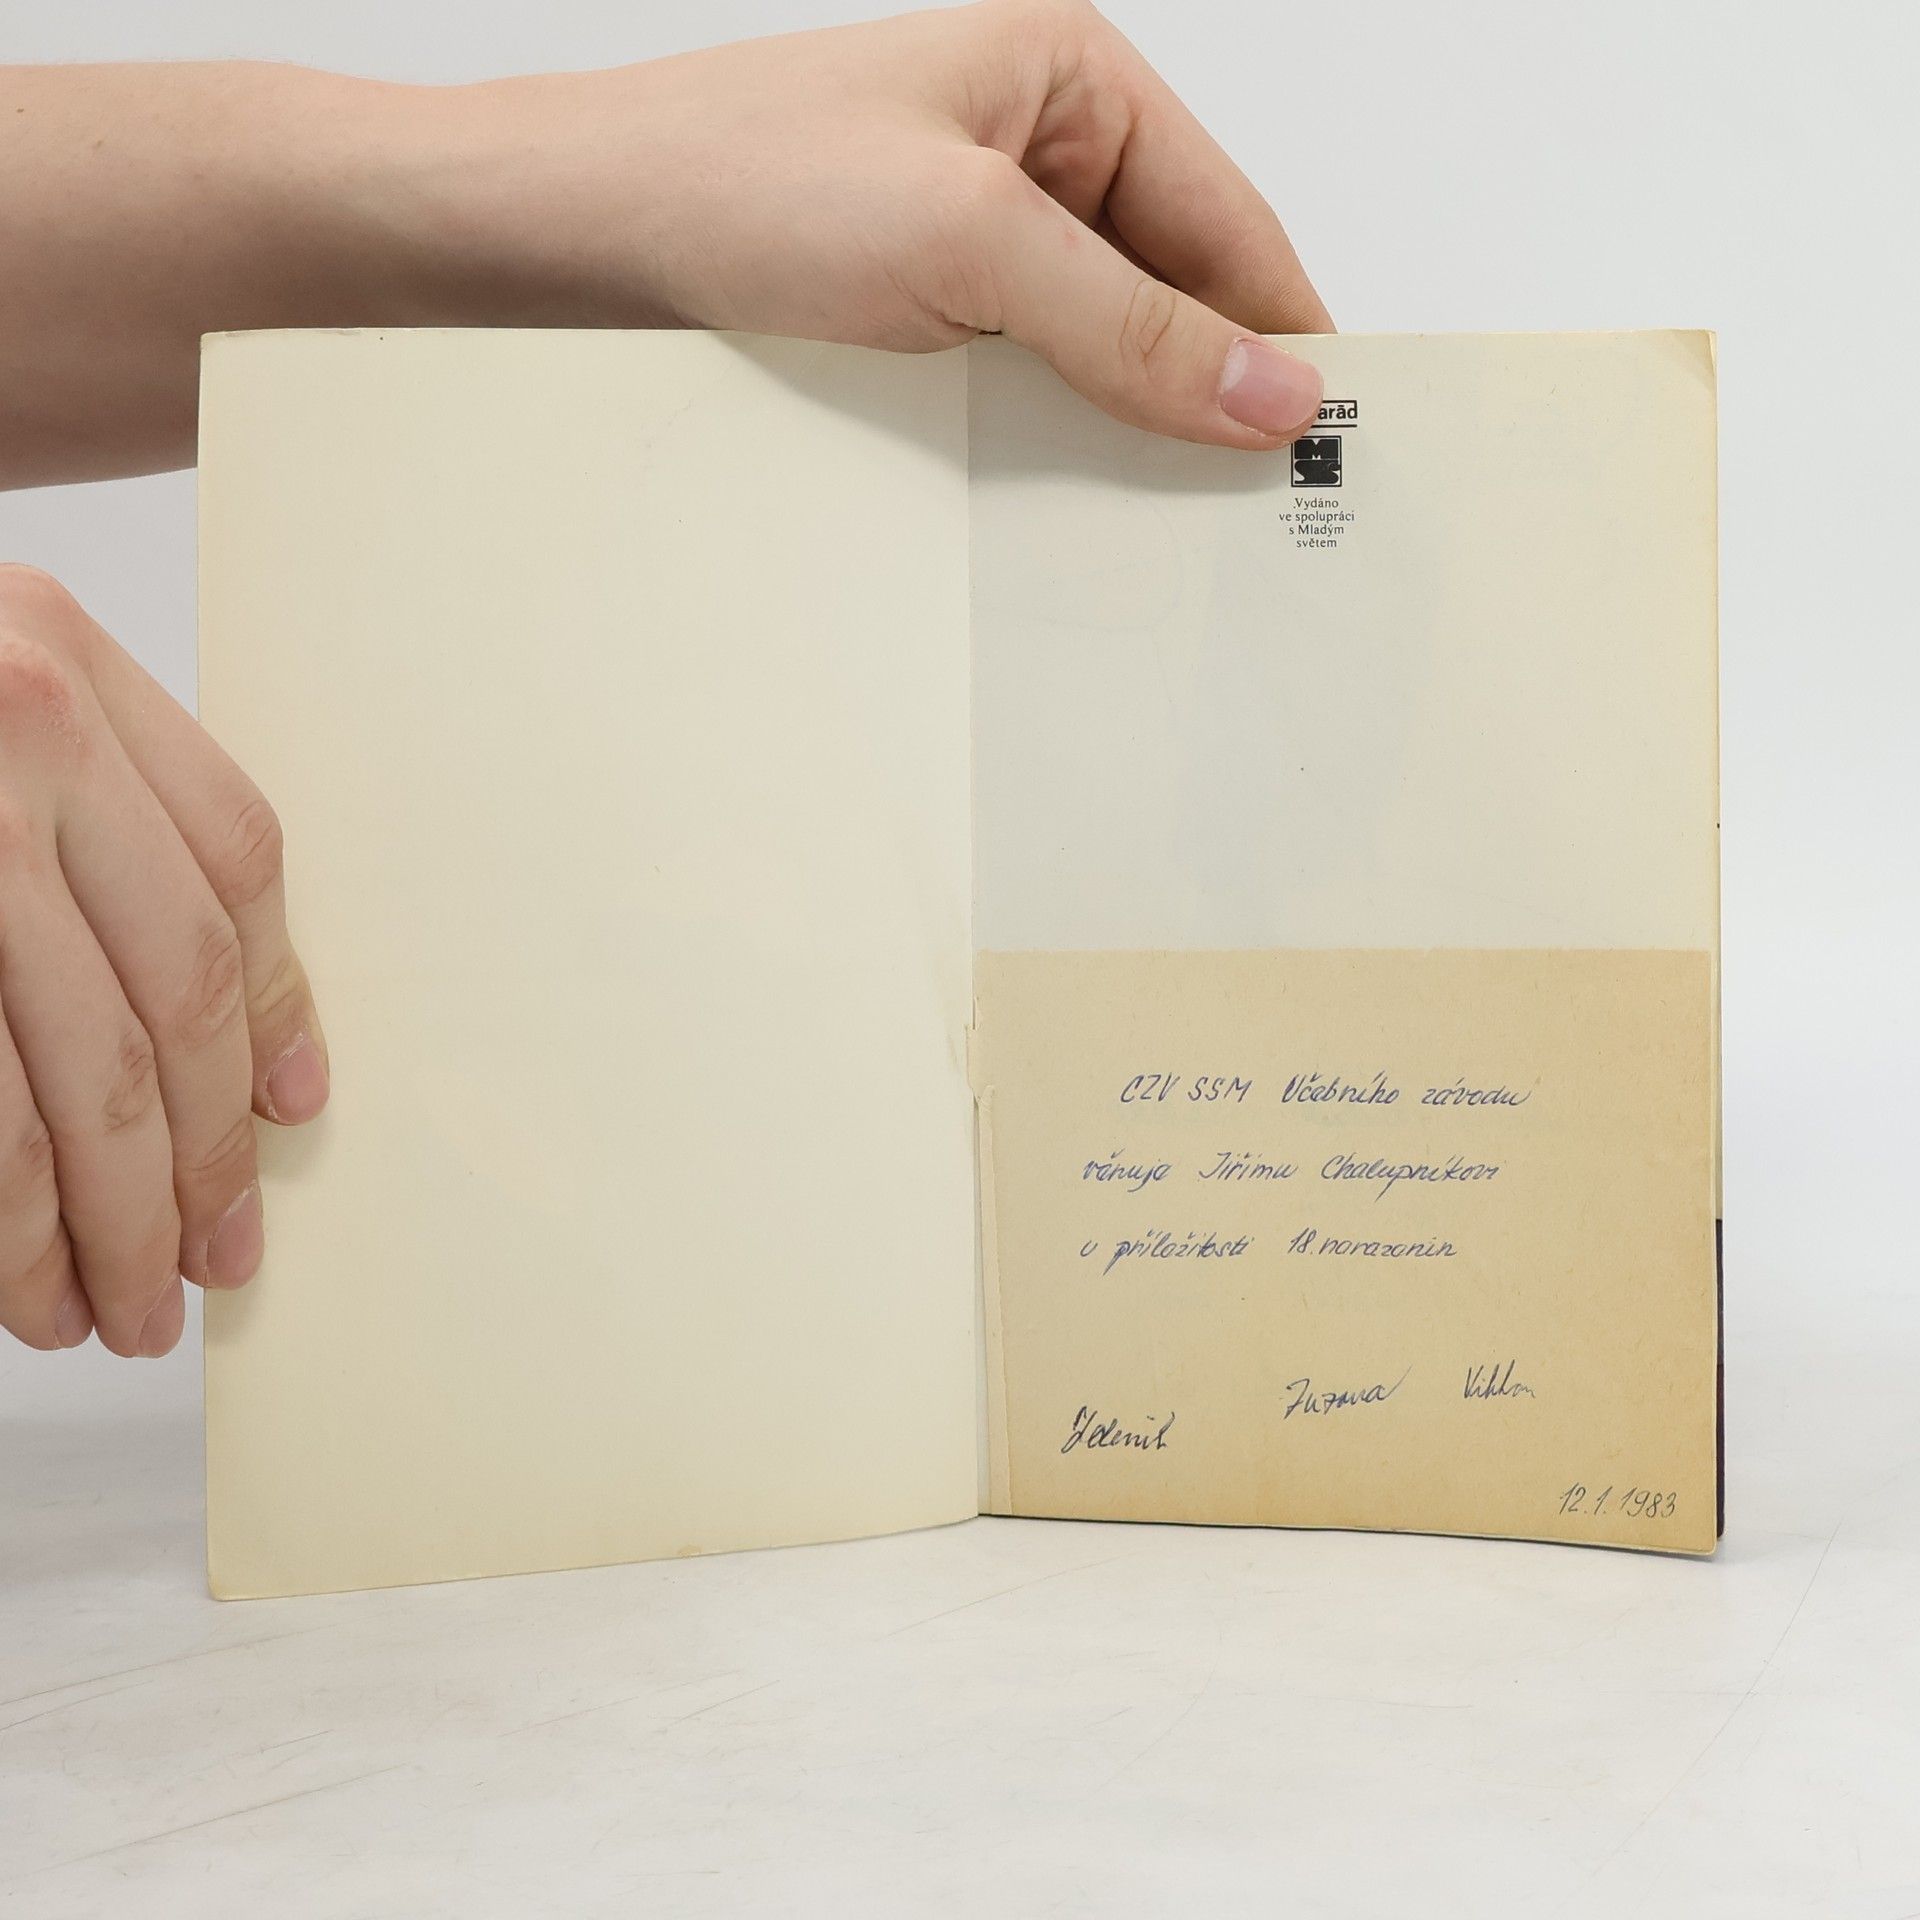 arād
MS
Vydáno
ve spolupráci
s Mladým
světem
CZV SSM Učebního závodu
věnuje Jiřímu Chalupníkovi
u příležitosti 18. narozenin
Zuzana
12.1.1983